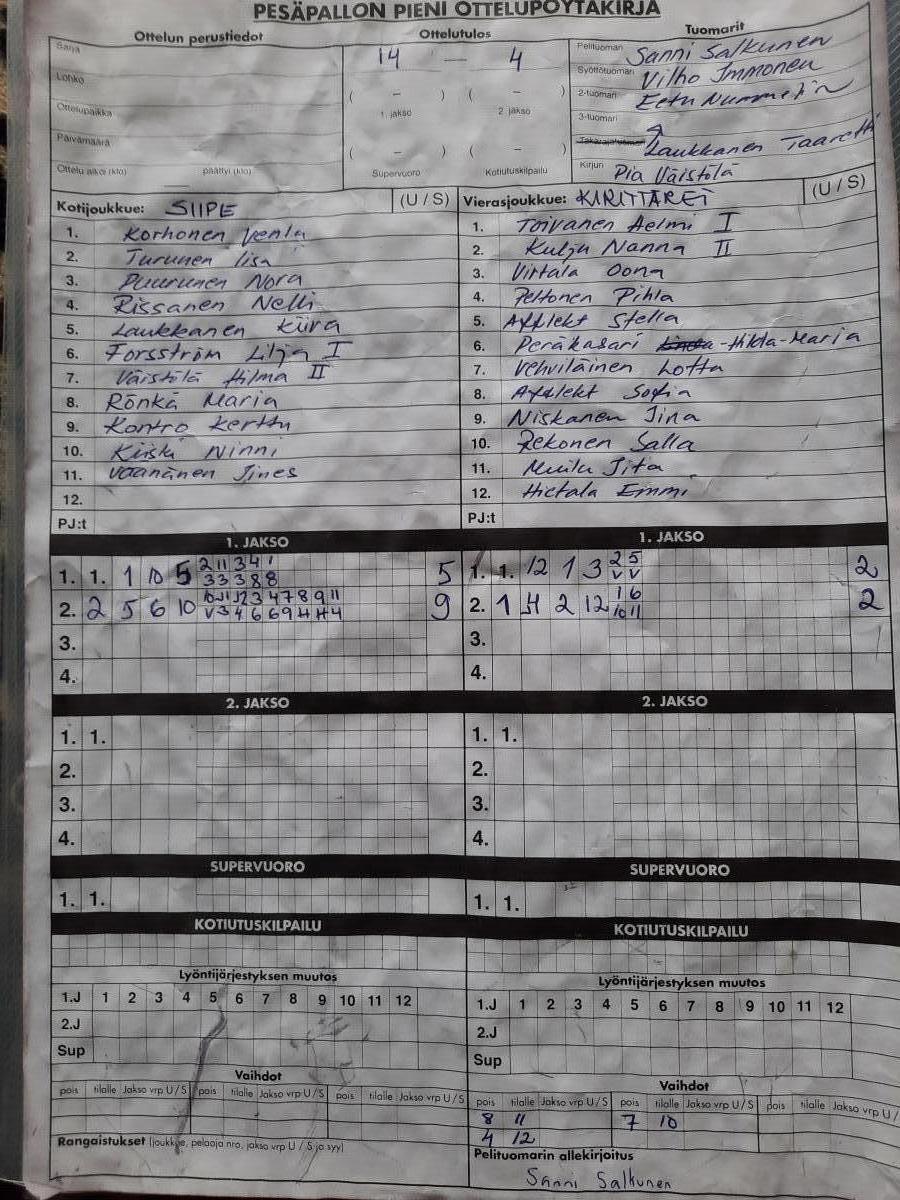 PESÄPALLON PIENI OTTELUPÖYTÄKIRJA
Ottelun perustiedot
Sarja
Lohko
Ottelupaikka
Päivämäärä
Ottelu alkoi (klo) ___ päättyi (klo)
Ottelutulos
14 — 4
( – ) ( – )
1. jakso 2. jakso
( – ) ( – )
Supervuoro Kotiutuskilpailu
Tuomarit
Pelituomari Sanni Salkunen
Syöttötuomari Vilho Immonen
2-tuomari Eetu
3-tuomari
Takarajatuomari Laukkanen Taaretti
Kirjuri Pia Väistölä
Kotijoukkue: SIIPE (U / S)
1. Korhonen Venla
2. Turunen Iisa
3. Puurunen Nora
4. Rissanen Nelli
5. Laukkanen Kiira
6. Forsström Lilja I
7. Väistölä Hilma II
8. Rönkä Maria
9. Kontro Kerttu
10. Kiiski Ninni
11. Väänänen Jines
12.
PJ:t
Vierasjoukkue: KIRITTÄRET (U / S)
1. Toivanen Helmi I
2. Kulju Nanna II
3. Virtala Oona
4. Peltonen Pihla
5. Afflekt Stella
6. Peräkasari -Hilda-Maria
7. Vehviläinen Lotta
8. Afflekt Sofia
9. Niskanen Iina
10. Rekonen Salla
11. Muilu Jita
12. Hietala Emmi
PJ:t
1. JAKSO
1. 1. 1 10 5 2 11 3 4 1 5
3 3 3 8 8
2. 2 5 6 10 9
3.
4.
2. JAKSO
1. 1.
2.
3.
4.
SUPERVUORO
1. 1.
KOTIUTUSKILPAILU
Lyöntijärjestyksen muutos
1.J 1 2 3 4 5 6 7 8 9 10 11 12
2.J
Sup
Vaihdot
pois tilalle Jakso vrp U / S pois tilalle Jakso vrp U / S pois tilalle Jakso vrp U / S
Rangaistukset (joukkue, pelaaja nro, jakso vrp U / S ja syy)
1. JAKSO
1. 1. 12 1 3 2 5 2
V V
2. 1 4 2 12 1 6 2
10 11
3.
4.
2. JAKSO
1. 1.
2.
3.
4.
SUPERVUORO
1. 1.
KOTIUTUSKILPAILU
Lyöntijärjestyksen muutos
1.J 1 2 3 4 5 6 7 8 9 10 11 12
2.J
Sup
Vaihdot
pois tilalle Jakso vrp U / S pois tilalle Jakso vrp U / S pois tilalle Jakso vrp U /
8 11 7 10
4 12
Pelituomarin allekirjoitus
Sanni Salkunen